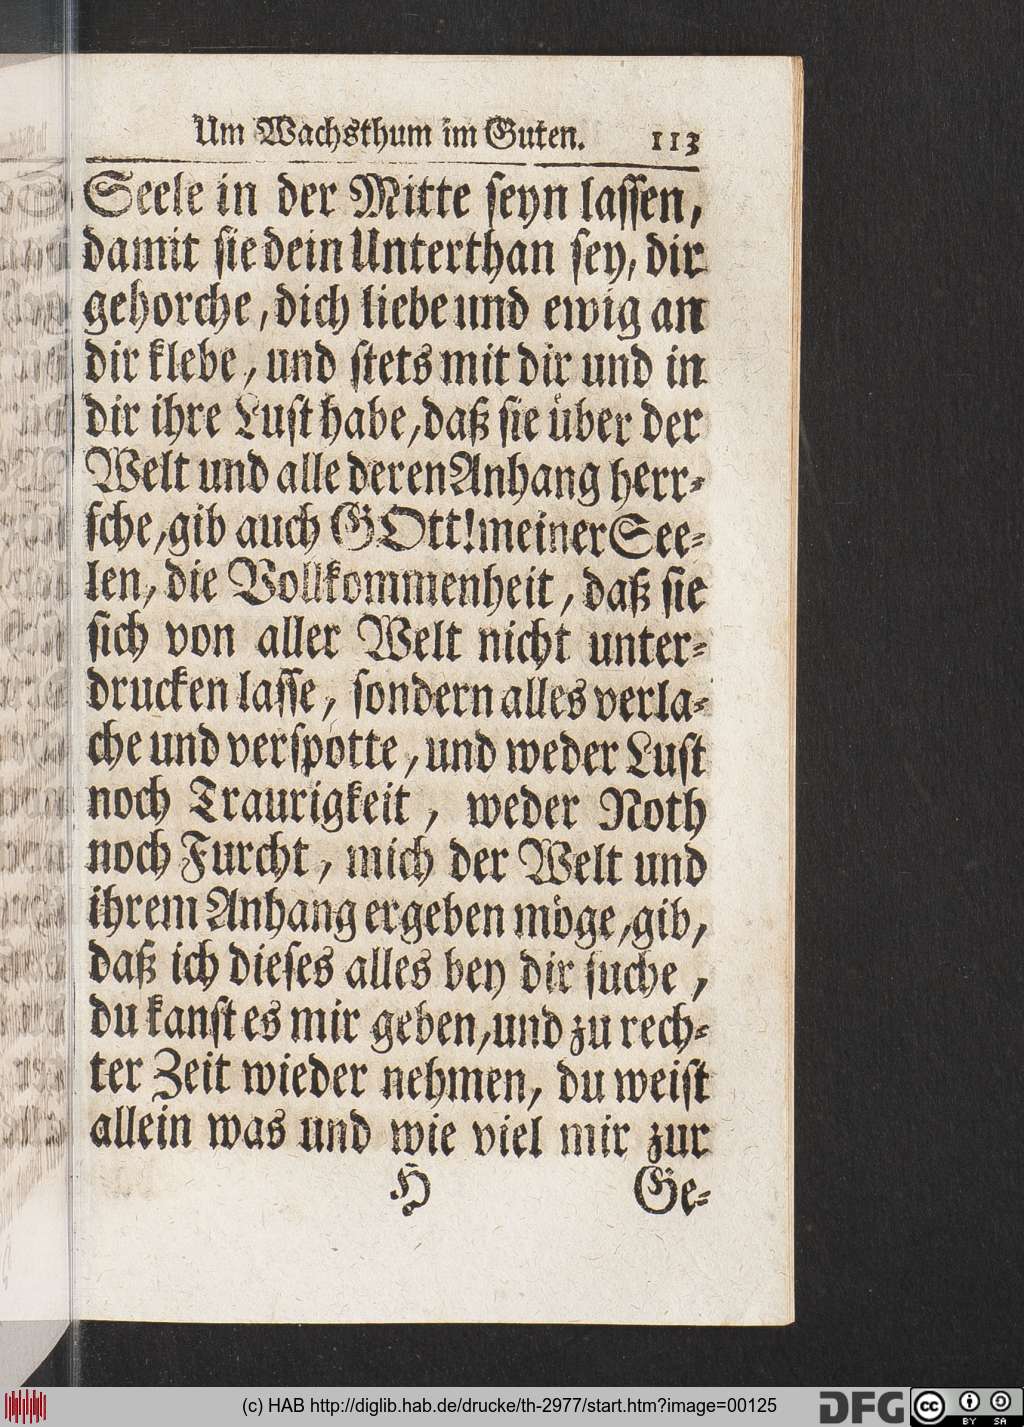 Um Wachsthum im Guten. 113
Seele in der Mitte seyn lassen,
damit sie dein Unterthan sey, dir
gehorche, dich liebe und ewig an
dir klebe, und stets mit dir und in
dir ihre Lust habe, daß sie über der
Welt und alle deren Anhang herr-
sche, gib auch GOtt! meiner See-
len, die Vollkommenheit, daß sie
sich von aller Welt nicht unter-
drucken lasse, sondern alles verla-
che und verspotte, und weder Lust
noch Traurigkeit, weder Noth
noch Furcht, mich der Welt und
ihrem Anhang ergeben möge, gib,
daß ich dieses alles bey dir suche,
du kanst es mir geben, und zu rech-
ter Zeit wieder nehmen, du weist
allein was und wie viel mir zur
H Ge-
(c) HAB http://diglib.hab.de/drucke/th-2977/start.htm?image=00125
DFG
cc BY SA